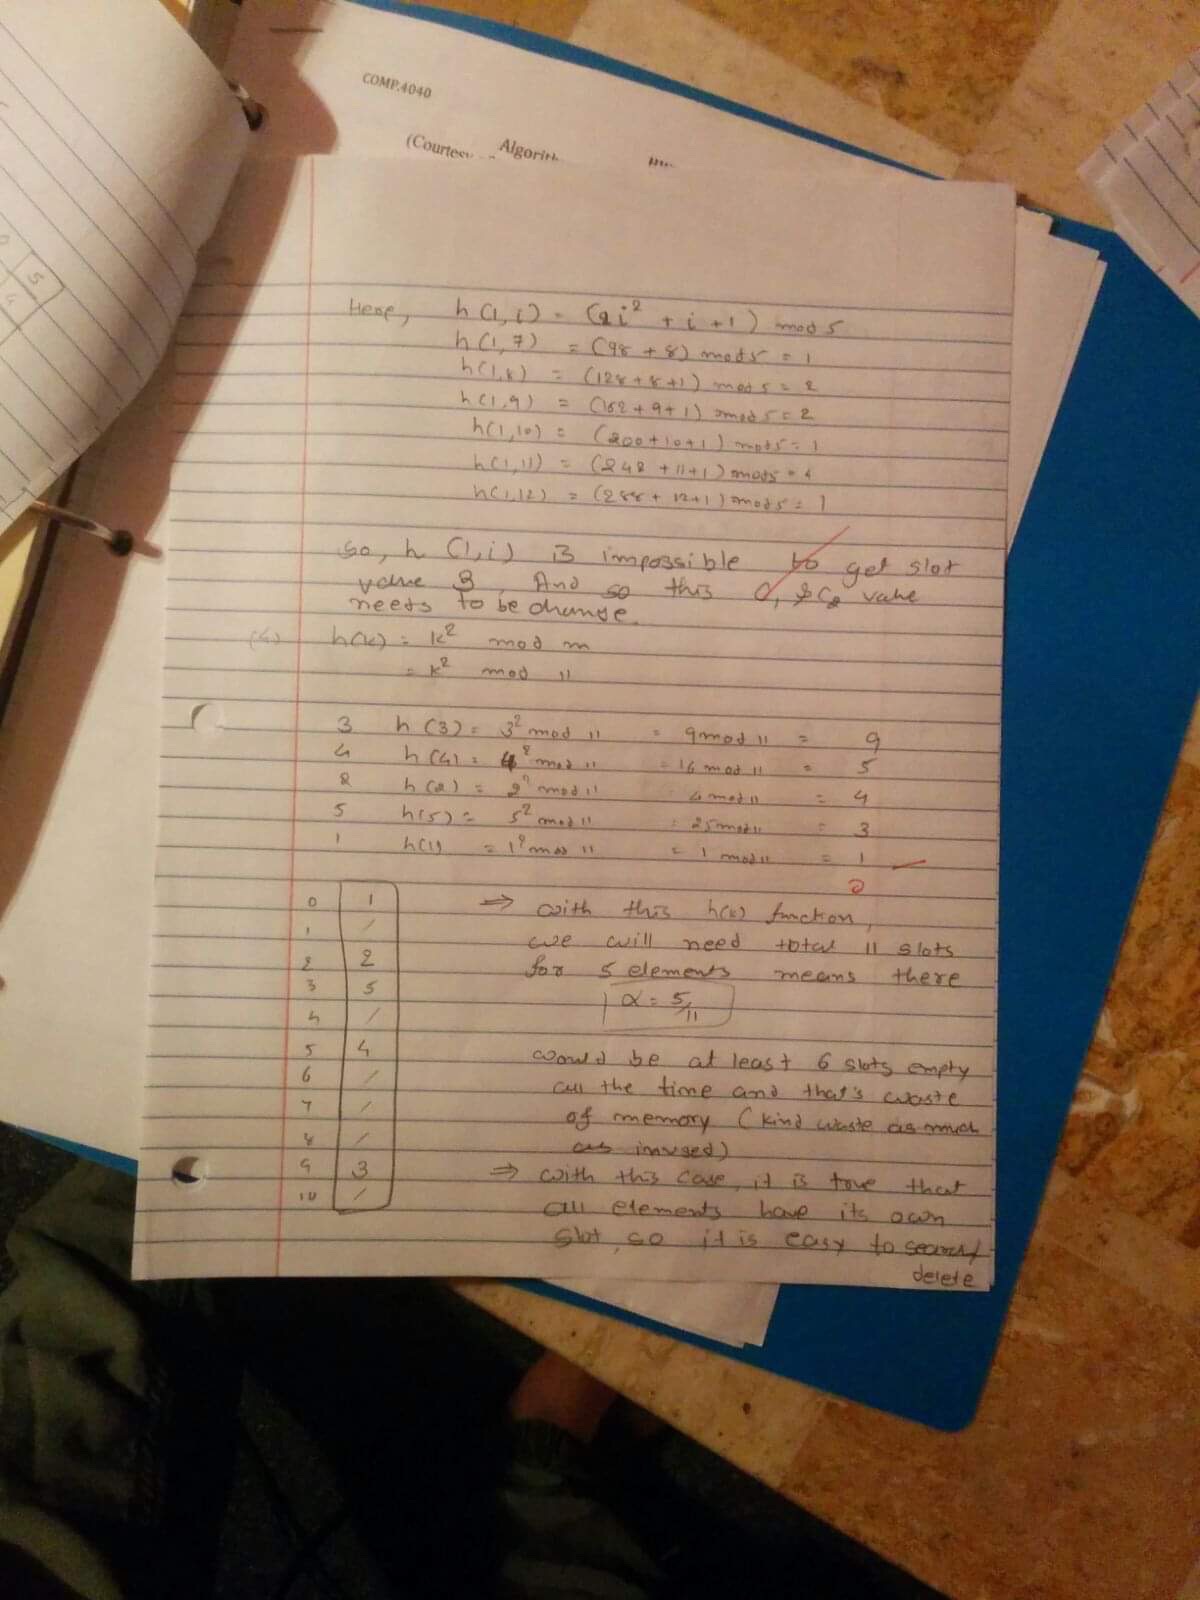 COMP.4040
(Courtesy
Here, h(1,i) = (2i² + i + 1) mod 5
h(1,7) = (98 + 8) mod 5 = 1
h(1,8) = (128 + 8 + 1) mod 5 = 2
h(1,9) = (162 + 9 + 1) mod 5 = 2
h(1,10) = (200 + 10 + 1) mod 5 = 1
h(1,11) = (242 + 11 + 1) mod 5 = 4
h(1,12) = (288 + 12 + 1) mod 5 = 1
so, h (1,i) is impossible to get slot
value 3. And so this C₁ & C₂ value
needs to be change.
(4) h(k) = k² mod m
= k² mod 11
3 h(3) = 3² mod 11 = 9 mod 11 = 9
4 h(4) = 4² mod 11 = 16 mod 11 = 5
2 h(2) = 2² mod 11 4 mod 11 = 4
5 h(5) = 5² mod 11 = 25 mod 11 = 3
1 h(1) = 1² mod 11 = 1 mod 11 = 1
0 1
1 /
2 2
3 5
4 /
5 4
6 /
7 /
8 /
9 3
10 /
⇒ with this h(k) function,
we will need total 11 slots
for 5 elements means there
α = 5/11
would be at least 6 slots empty
all the time and that's waste
of memory (kind waste as much
as inused)
⇒ with this case, it is true that
all elements have its own
slot, so it is easy to search/
delete
5
4